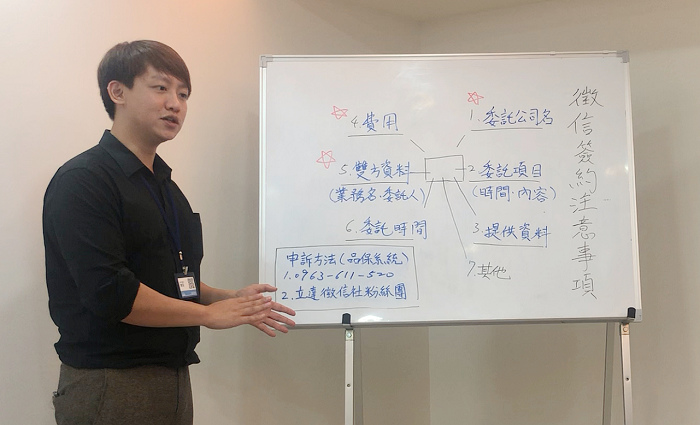 徵信簽約注意事項
1.委託公司名
2.委託項目
(時間.內容)
3.提供資料
4.費用
5.雙方資料
(業務名.委託人)
6.委託時間
7.其他
申訴方法(品保系統)
1.0963-611-520
2.立達徵信社粉絲團